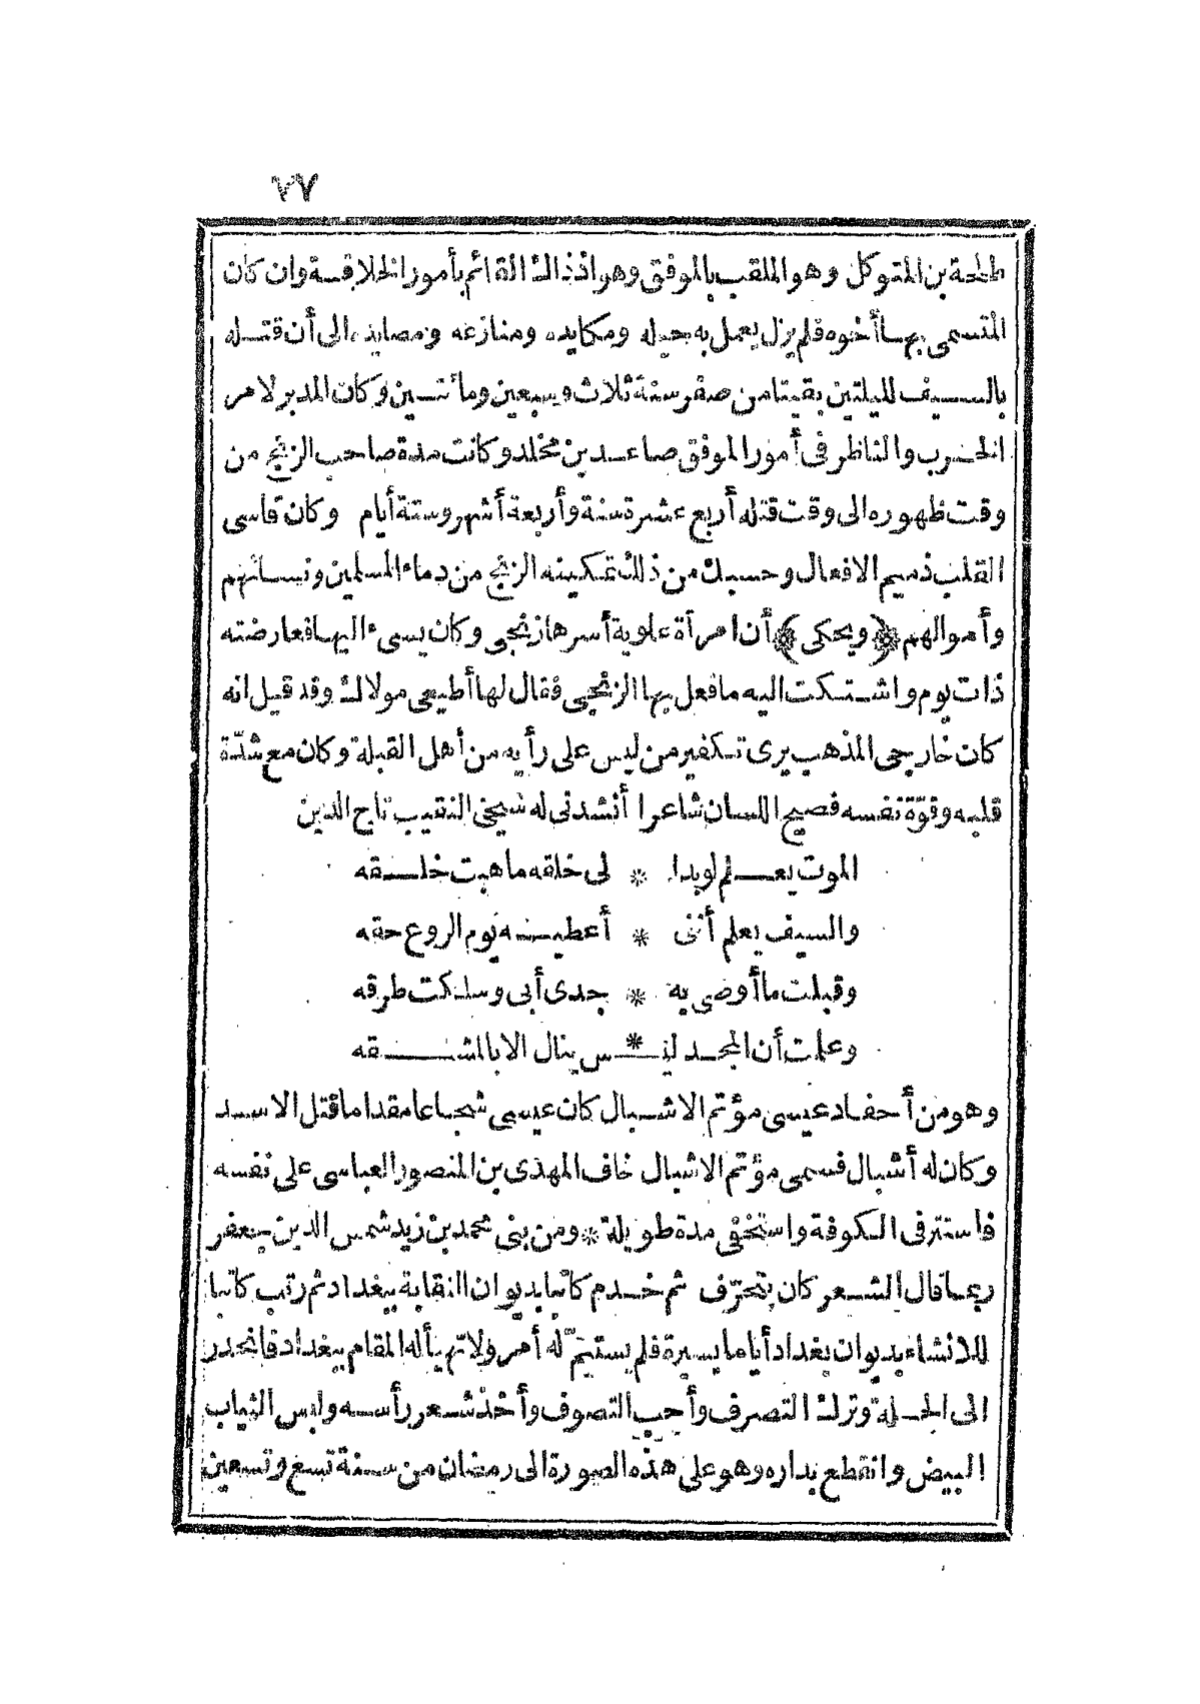 ٧٧
طلحة بن المتوكل وهو الملقب بالموفق وهو اذ ذاك القائم بأمور الخلافة وان كان
المتسمى بها أخوه فلم يزل يعمل به حيله ومكايده ومنازعه ومصايده الى أن قتله
بالسيف لليلتين بقيتا من صفر سنة ثلاث وسبعين ومائتين وكان المدبر لامر
الحرب والناظر فى أمور الموفق صاعد بن مخلد وكانت مدة صاحب الزنج من
وقت ظهوره الى وقت قتله أربع عشرة سنة وأربعة أشهر وستة أيام وكان قاسى
القلب ذميم الافعال وحسبك من ذلك تمكينه الزنج من دماء المسلمين ونسائهم
وأموالهم ﴿ويحكى﴾ أن امرأة علوية أسرها زنجى وكان يسىء اليها فعارضته
ذات يوم واشتكت اليه ما فعل بها الزنجى فقال لها أطيعى مولاك وقد قيل انه
كان خارجى المذهب يرى تكفير من ليس على رأيه من أهل القبلة وكان مع شدّة
قلبه وقوّة نفسه فصيح اللسان شاعرا أنشدنى له شيخى النقيب تاج الدين
الموت يعلم لو بدا * لى خلقه ما هبت خلقه
والسيف يعلم أننى * أعطيه يوم الروع حقه
وقبلت ما أوصى به * جدى أبى وسلكت طرقه
وعلمت أن المجد ليـ * ـس ينال الا بالمشقه
وهو من أحفاد عيسى مؤتم الاشبال كان عيسى شجاعا مقداما قتل الاسد
وكان له أشبال فسمى مؤتم الاشبال خاف المهدى بن المنصور العباسى على نفسه
فاستتر فى الكوفة واستخفى مدة طويلة * ومن بنى محمد بن زيد شمس الدين جعفر
ربما قال الشعر كان يتحرّف ثم خدم كاتبا بديوان النقابة ببغداد ثم رتب كاتبا
للانشاء بديوان بغداد أياما يسيرة فلم يستتمّ له أمر ولا تهيأ له المقام ببغداد فانحدر
الى الحلة وترك التصرف وأحب التصوف وأخذ شعر رأسه ولبس الثياب
البيض وانقطع بداره وهو على هذه الصورة الى رمضان من سنة تسع وتسعين